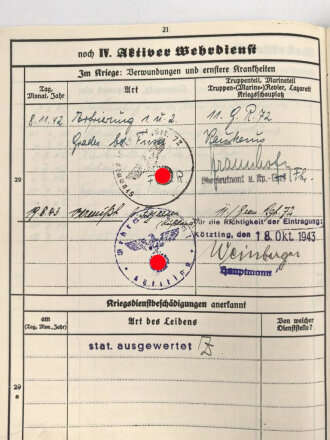 21
noch IV. Aktiver Wehrdienst
Im Kriege: Verwundungen und ernstere Krankheiten
Tag, Monat, Jahr
Art
Truppenteil, Marineteil
Truppen-(Marine-)Revier, Lazarett
Kriegsschauplatz
8.11.42 Erfrierung 1. u. 2. 11. G.R. 72
Grades bd. Füße
29
19.8.43 vermißt
Für die Richtigkeit der Eintragung:
Kötzting, den 18. Okt. 1943
Weinberger
Hauptmann
Kriegsdienstbeschädigungen anerkannt
am
(Tag, Mon., Jahr)
Art des Leidens
Von welcher
Dienststelle?
stat. ausgewertet
29
a